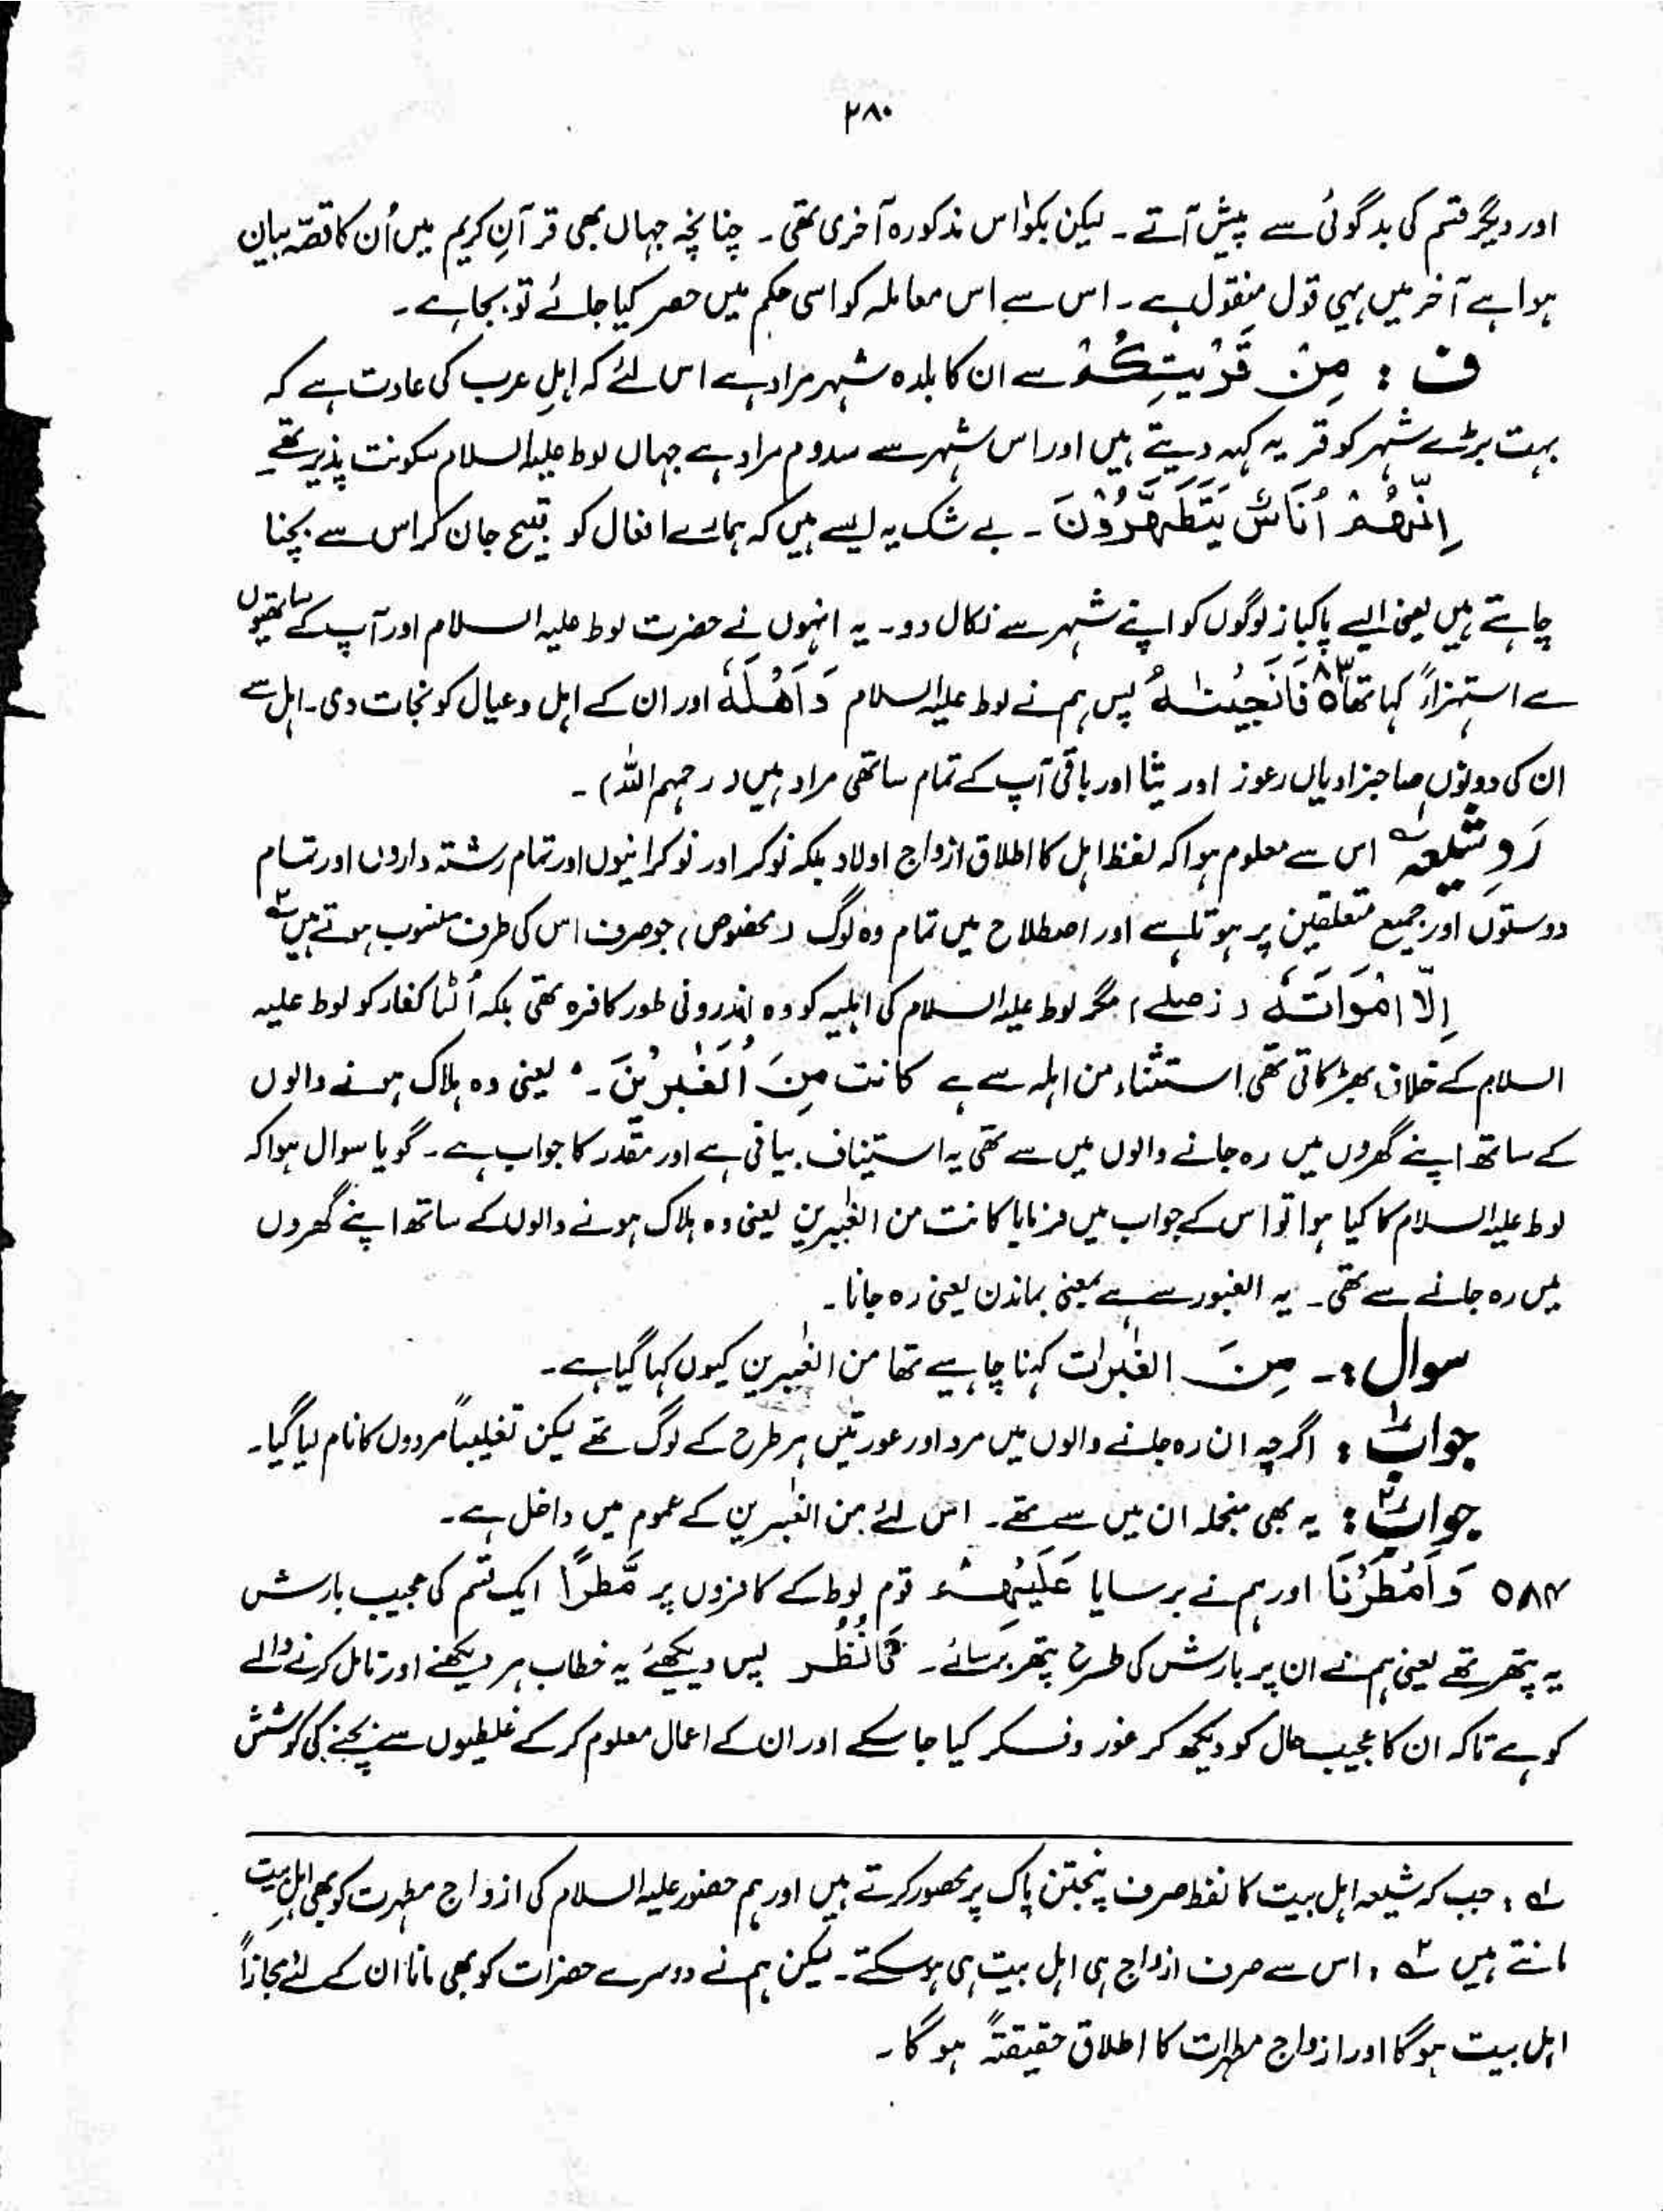 ۲۸۰
اور دیگر قسم کی بدگوئی سے پیش آتے ۔ لیکن بکواس مذکورہ آخری تھی ۔ چنانچہ جہاں بھی قرآنِ کریم میں اُن کا قصّہ بیان
ہوا ہے آخر میں یہی قول منقول ہے ۔ اس سے اس معاملہ کو اسی حکم میں حصر کیا جائے تو بجا ہے ۔
ف : مِنْ قَرْيَتِكُمْ سے ان کا بلدہ شہر مراد ہے اس لئے کہ اہلِ عرب کی عادت ہے کہ
بہت بڑے شہر کو قریہ کہہ دیتے ہیں اور اس شہر سے سدوم مراد ہے جہاں لوط علیہ السلام سکونت پذیر تھے
اِنَّهُمْ اُنَاسٌ يَّتَطَهَّرُوْنَ ۔ بے شک یہ ایسے ہیں کہ ہمارے افعال کو قبیح جان کر اس سے بچنا
چاہتے ہیں یعنی ایسے پاکباز لوگوں کو اپنے شہر سے نکال دو ۔ یہ انہوں نے حضرت لوط علیہ السلام اور آپ کے ساتھیوں
سے استہزاءً کہا تھا ۸۳ فَاَنْجَيْنٰهُ پس ہم نے لوط علیہ السلام وَاَهْلَهٗ اور ان کے اہل و عیال کو نجات دی ۔ اہل سے
ان کی دونوں صاحبزادیاں رعوز اور یثا اور باقی آپ کے تمام ساتھی مراد ہیں ( رحمہم اللہ ) ۔
رَدِ شیعہ ۱؎ اس سے معلوم ہوا کہ لفظ اہل کا اطلاق ازواج اولاد بلکہ نوکر اور نوکرانیوں اور تمام رشتہ داروں اور تمام
دوستوں اور جمیع متعلقین پر ہوتا ہے اور اصطلاح میں تمام وہ لوگ ( مخصوص ) جو صرف اس کی طرف منسوب ہوتے ہیں ۲؎
اِلَّا امْرَاَتَهٗ ( زصلے ) مگر لوط علیہ السلام کی اہلیہ کو وہ اندرونی طور کافرہ تھی بلکہ اُلٹا کفار کو لوط علیہ
السلام کے خلاف بھڑکاتی تھی استثناء من اہلہ سے ہے كانت مِنَ الْغٰبِرِيْنَ ۔ یعنی وہ ہلاک ہونے والوں
کے ساتھ اپنے گھروں میں رہ جانے والوں میں سے تھی یہ استیناف بیانی ہے اور مقدّر کا جواب ہے ۔ گویا سوال ہوا کہ
لوط علیہ السلام کا کیا ہوا تو اس کے جواب میں فرمایا کانت من الغٰبرین یعنی وہ ہلاک ہونے والوں کے ساتھ اپنے گھروں
میں رہ جانے سے تھی ۔ یہ الغبور سے ہے بمعنی بماندن یعنی رہ جانا ۔
سوال :۔ مِنَ الغٰبرات کہنا چاہیے تھا من الغٰبرین کیوں کہا گیا ہے ۔
جواب ۱ : اگرچہ ان رہ جانے والوں میں مرد اور عورتیں ہر طرح کے لوگ تھے لیکن تغلیباً مردوں کا نام لیا گیا ۔
جواب ۲ : یہ بھی منجملہ ان میں سے تھے ۔ اس لئے من الغٰبرین کے عموم میں داخل ہے ۔
۸۴ وَاَمْطَرْنَا اور ہم نے برسایا عَلَيْهِمْ قوم لوط کے کافروں پر مَّطَرًا ایک قسم کی عجیب بارش
یہ پتھر تھے یعنی ہم نے ان پر بارش کی طرح پتھر برسائے ۔ فَانْظُرْ پس دیکھئے یہ خطاب ہر دیکھنے اور تامل کرنے والے
کو ہے تاکہ ان کا عجیب حال کو دیکھ کر غور و فکر کیا جا سکے اور ان کے اعمال معلوم کر کے غلطیوں سے بچنے کی کوشش
۱؎ : جب کہ شیعہ اہل بیت کا لفظ صرف پنجتن پاک پر محصور کرتے ہیں اور ہم حضور علیہ السلام کی ازواج مطہرت کو بھی اہلِ بیت
مانتے ہیں ۲؎ : اس سے صرف ازواج ہی اہل بیت ہی ہو سکتے ۔ لیکن ہم نے دوسرے حضرات کو بھی مانا ان کے لئے مجازاً
اہل بیت ہو گا اور ازواج مطہرات کا اطلاق حقیقتہً ہو گا ۔